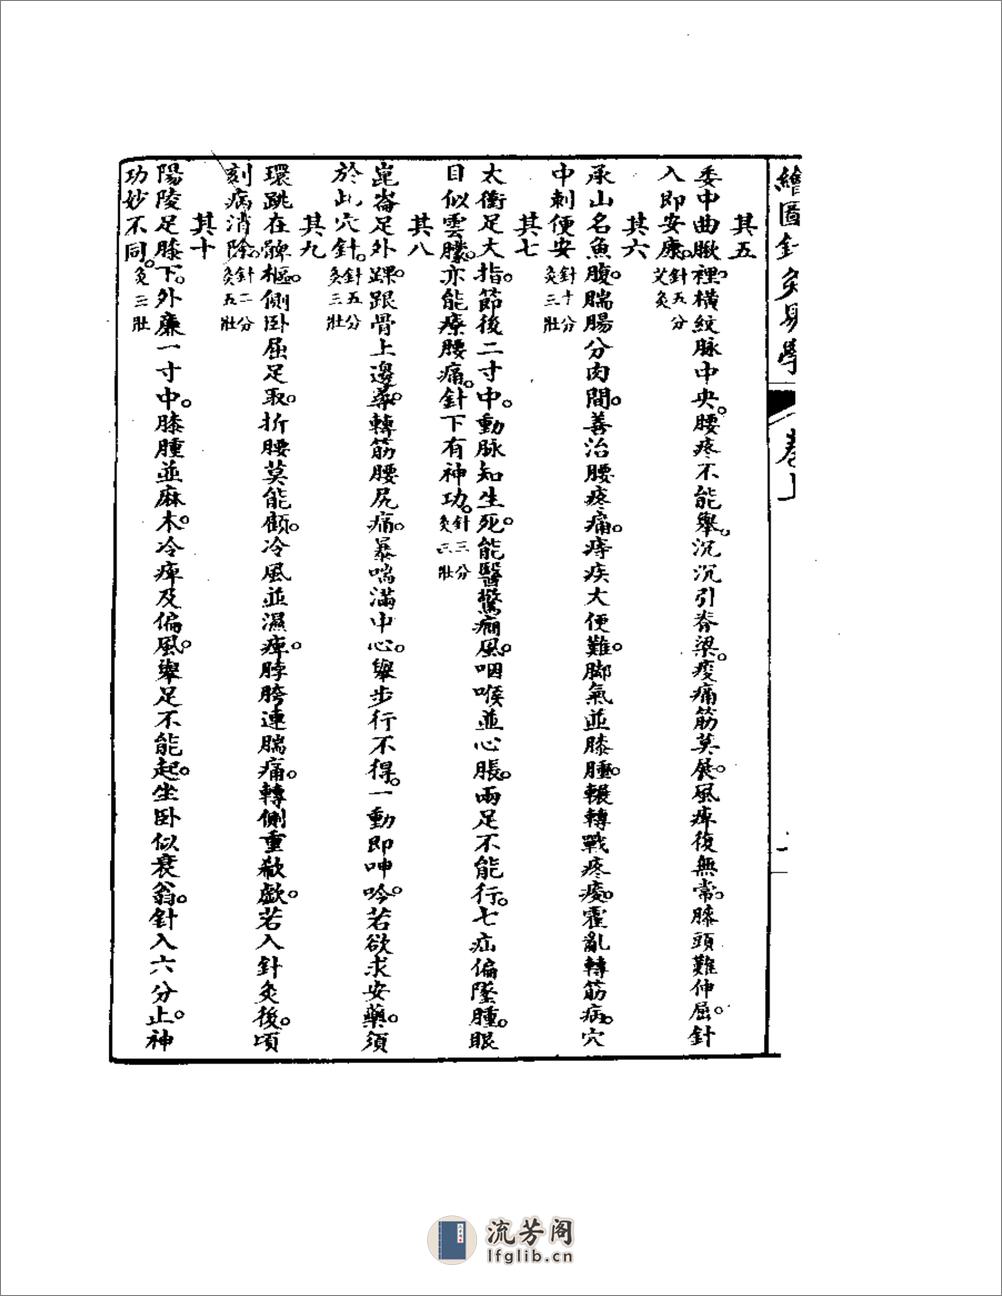 繪圖針灸易學
卷上
其五
委中曲瞅裡。橫紋脉中央。腰疼不能舉。沉沉引脊梁。痠痛筋莫展。風痺復無常。膝頭難伸屈。針
入即安康。針五分艾灸
其六
承山名魚腹。腨腸分肉間。善治腰疼痛。痔疾大便難。脚氣並膝腫。輾轉戰疼痠。霍亂轉筋病。穴
中刺便安針十分灸三壯
其七
太衝足大指。節後二寸中。動脉知生死。能醫驚癇風。咽喉並心脹。兩足不能行。七疝偏墜腫。眼
目似雲朦。亦能療腰痛。針下有神功。針三分灸三壯
其八
崑崙足外踝。跟骨上邊尋。轉筋腰尻痛。暴喘滿中心。舉步行不得。一動即呻吟。若欲求安藥。須
於此穴針。針五分灸三壯
其九
環跳在髀樞。側卧屈足取。折腰莫能顧。冷風並濕痺。脖胯連腨痛。轉側重欷歔。若入針灸後。頃
刻病消除。針二分灸五壯
其十
陽陵足膝下。外廉一寸中。膝腫並麻木。冷痺及偏風。舉足不能起。坐卧似衰翁。針入六分止。神
功妙不同。灸三壯
流芳阁
lfglib.cn